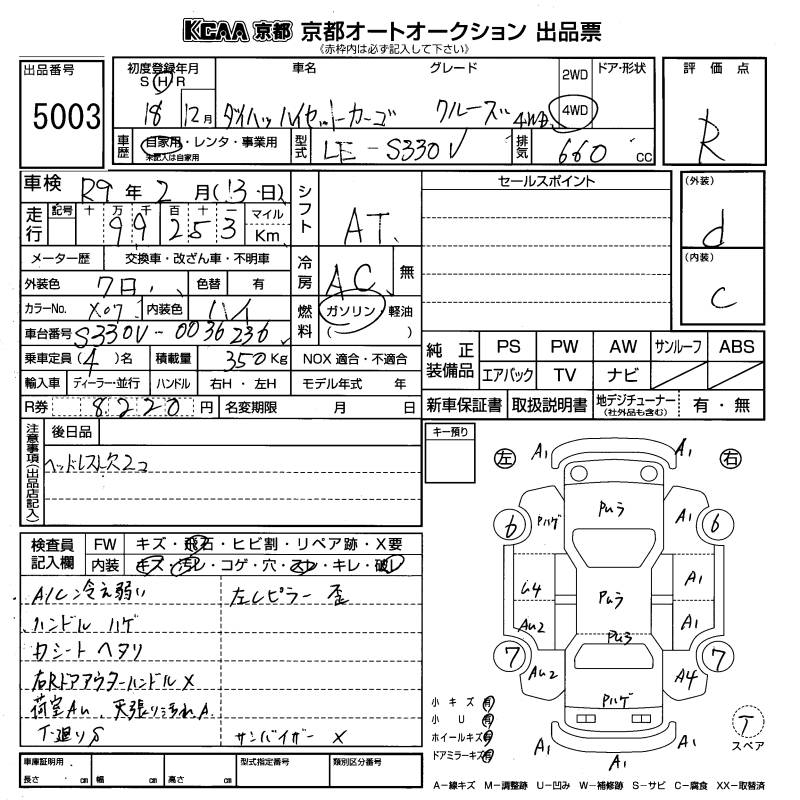 KCAA 京都 京都オートオークション 出品票
《赤枠内は必ず記入して下さい》
出品番号
5003
初度登録年月
S H R
18 12月
車名 グレード
ダイハツ ハイゼットカーゴ クルーズ 4WD
2WD
4WD
ドア・形状
車歴
自家用・レンタ・事業用
未記入は自家用
型式
LE-S330V
排気
660 CC
評価点
R
車検 R9年 2月(13・日)
走行
記号 十 万 千 百 十 一
99253
マイル
Km
メーター歴 交換車・改ざん車・不明車
外装色 クロ 色替 有
カラーNo. X07 内装色
車台番号 S330V-0036236
乗車定員(4)名 積載量 350Kg
輸入車 ディーラー・並行 ハンドル 右H・左H
R券 8220円 名変期限 月 日
シフト AT
冷房 AC 無
燃料 ガソリン 軽油
( )
NOX 適合・不適合
モデル年式 年
セールスポイント
(外装)
d
(内装)
C
純正装備品
PS PW AW サンルーフ ABS
エアバック TV ナビ
新車保証書 取扱説明書 地デジチューナー
(社外品も含む)
有・無
注意事項(出品店記入)
後日品
ヘッドレスト欠2コ
キー預り
検査員記入欄
FW キズ・飛石・ヒビ割・リペア跡・X要
内装 キズ・汚レ・コゲ・穴・スレ・キレ・破レ
A/C 冷え弱い 左Lピラー 歪
ハンドル ハゲ
カシート ヘタリ
右Rドアアウターハンドル X
荷室AU、天張り汚れA.
下廻りS サンバイザー X
左 右
A1 A1
6 Pハゲ PUラ A1 6
U4 PUラ A1
AU2 PU3 A1
7 AU2 Pハゲ A4 7
A1 A1 A1
小キズ 有
小U 有
ホイールキズ 有
ドアミラーキズ 有
T
スペア
車庫証明用
長さ cm 幅 cm 高さ cm
型式指定番号 類別区分番号
A−線キズ M−調整跡 U−凹み W−補修跡 S−サビ C−腐食 XX−取替済